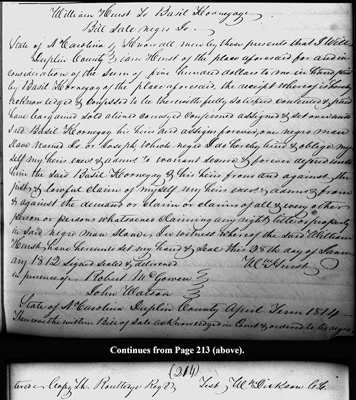 William Hurst To Basil Kornegay
Bill Sale negro Jo.
State of N Carolina } Know all men by these presents that I Will
Duplin County } iam Hurst of the place aforesaid for and in
consideration of the sum of five hundred dollars to me in hand paid
by Basil Kornegay of the place aforesaid, the receipt whereof is hereby
acknowledged & confessed to be therewith fully satisfied contented & paid
have bargained sold aliened conveyed confirmed assigned & set over unto
said Basil Kornegay his heirs and assigns forever, one negro man
slave named Jo or Joseph, which negro I do hereby bind & oblige my
self my heirs exers & adms to warrant secure & forever defend unto
him the said Basil Kornegay & his heirs from and against the
just & lawful claim of myself my heirs exers & adms & from
& against the demand or claim or claims of all & every other
person or persons whatsoever claiming any right title or property
in said negro man Slave, In witness whereof the said William
Hurst have hereunto set my hand & seal this 28th day of Janu
ary 1813 signed sealed & delivered Wm Hurst
in presence of Robert McGowen }
John Watson }
State of N Carolina Duplin County April Term 1814
Then was the within Bill of Sale acknowledged in Court & ordered to be regis
Continues from Page 213 (above).
(214)
tered Copy Th. Routledge Regr Test Wm Dickson C.C.